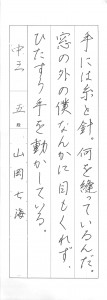 手には糸と針。何を縫っているんだ。
窓の外の僕なんかに目もくれず、
ひたすら手を動かしている。
中三 五組 山岡七海